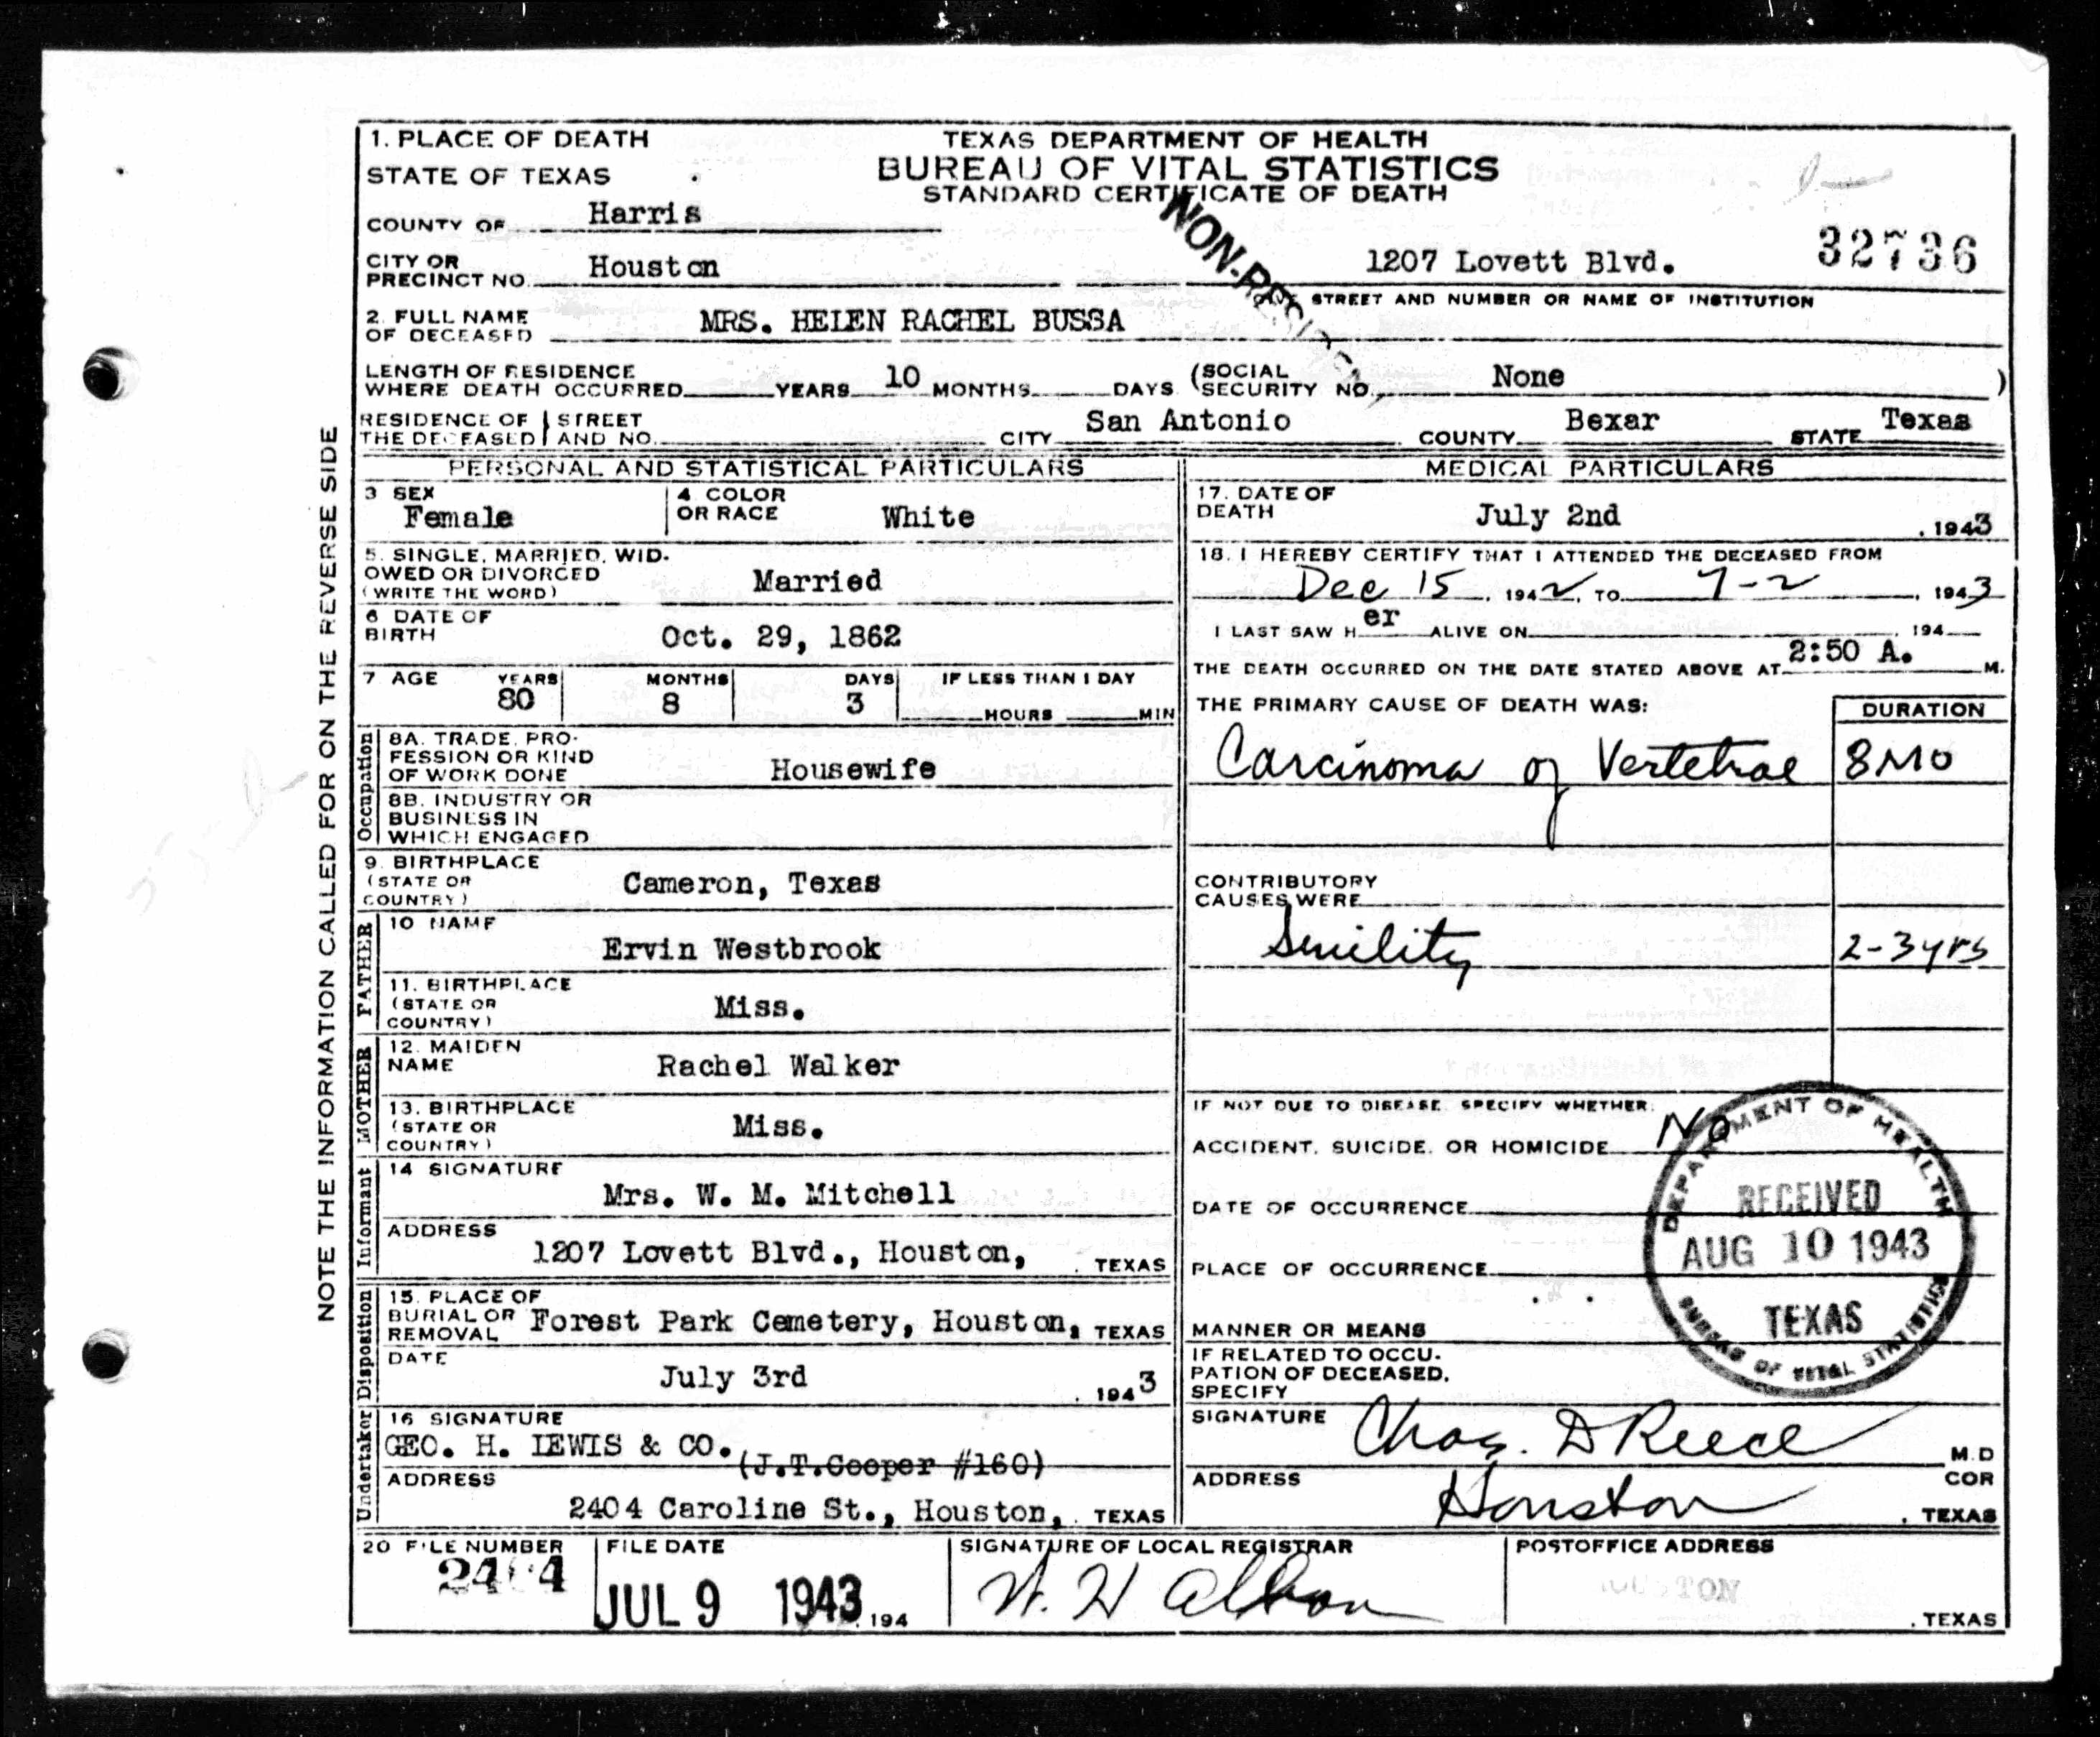 1. PLACE OF DEATH
STATE OF TEXAS
TEXAS DEPARTMENT OF HEALTH
BUREAU OF VITAL STATISTICS
STANDARD CERTIFICATE OF DEATH
NON-RESIDENT
COUNTY OF Harris
32736
CITY OR
PRECINCT NO. Houston
1207 Lovett Blvd.
STREET AND NUMBER OR NAME OF INSTITUTION
2. FULL NAME
OF DECEASED MRS. HELEN RACHEL BUSSA
LENGTH OF RESIDENCE
WHERE DEATH OCCURRED YEARS 10 MONTHS DAYS (SOCIAL
(SECURITY NO. None )
RESIDENCE OF THE DECEASED | STREET AND NO. CITY San Antonio COUNTY Bexar STATE Texas
NOTE THE INFORMATION CALLED FOR ON THE REVERSE SIDE
PERSONAL AND STATISTICAL PARTICULARS
3 SEX
Female
4 COLOR
OR RACE White
5. SINGLE, MARRIED, WID-
OWED OR DIVORCED
(WRITE THE WORD) Married
6 DATE OF
BIRTH Oct. 29, 1862
7 AGE YEARS MONTHS DAYS IF LESS THAN 1 DAY
80 8 3 HOURS MIN
Occupation
8A. TRADE, PRO-
FESSION OR KIND
OF WORK DONE Housewife
8B. INDUSTRY OR
BUSINESS IN
WHICH ENGAGED
9. BIRTHPLACE
(STATE OR
COUNTRY) Cameron, Texas
FATHER
10 NAME
Ervin Westbrook
11. BIRTHPLACE
(STATE OR
COUNTRY) Miss.
MOTHER
12. MAIDEN
NAME Rachel Walker
13. BIRTHPLACE
(STATE OR
COUNTRY) Miss.
Informant
14 SIGNATURE
Mrs. W. M. Mitchell
ADDRESS
1207 Lovett Blvd., Houston, TEXAS
Disposition
15. PLACE OF
BURIAL OR
REMOVAL Forest Park Cemetery, Houston, TEXAS
DATE
July 3rd , 1943
Undertaker
16 SIGNATURE
GEO. H. LEWIS & CO. (J.T.Cooper #160)
ADDRESS
2404 Caroline St., Houston, TEXAS
MEDICAL PARTICULARS
17. DATE OF
DEATH July 2nd , 1943
18. I HEREBY CERTIFY THAT I ATTENDED THE DECEASED FROM
Dec 15, 1942, TO 7-2, 1943
I LAST SAW Her ALIVE ON , 194
THE DEATH OCCURRED ON THE DATE STATED ABOVE AT 2:50 A. M.
THE PRIMARY CAUSE OF DEATH WAS: DURATION
Carcinoma of Vertebrae 8 MO
CONTRIBUTORY
CAUSES WERE
Senility 2-3 yrs
IF NOT DUE TO DISEASE, SPECIFY WHETHER:
ACCIDENT, SUICIDE, OR HOMICIDE No
DATE OF OCCURRENCE
PLACE OF OCCURRENCE
MANNER OR MEANS
IF RELATED TO OCCU-
PATION OF DECEASED,
SPECIFY
DEPARTMENT OF HEALTH
RECEIVED
AUG 10 1943
TEXAS
BUREAU OF VITAL STATISTICS
SIGNATURE Chas. D Reece M.D
ADDRESS COR
Houston , TEXAS
20 FILE NUMBER
FILE DATE
JUL 9 1943 , 194
SIGNATURE OF LOCAL REGISTRAR
POSTOFFICE ADDRESS
, TEXAS